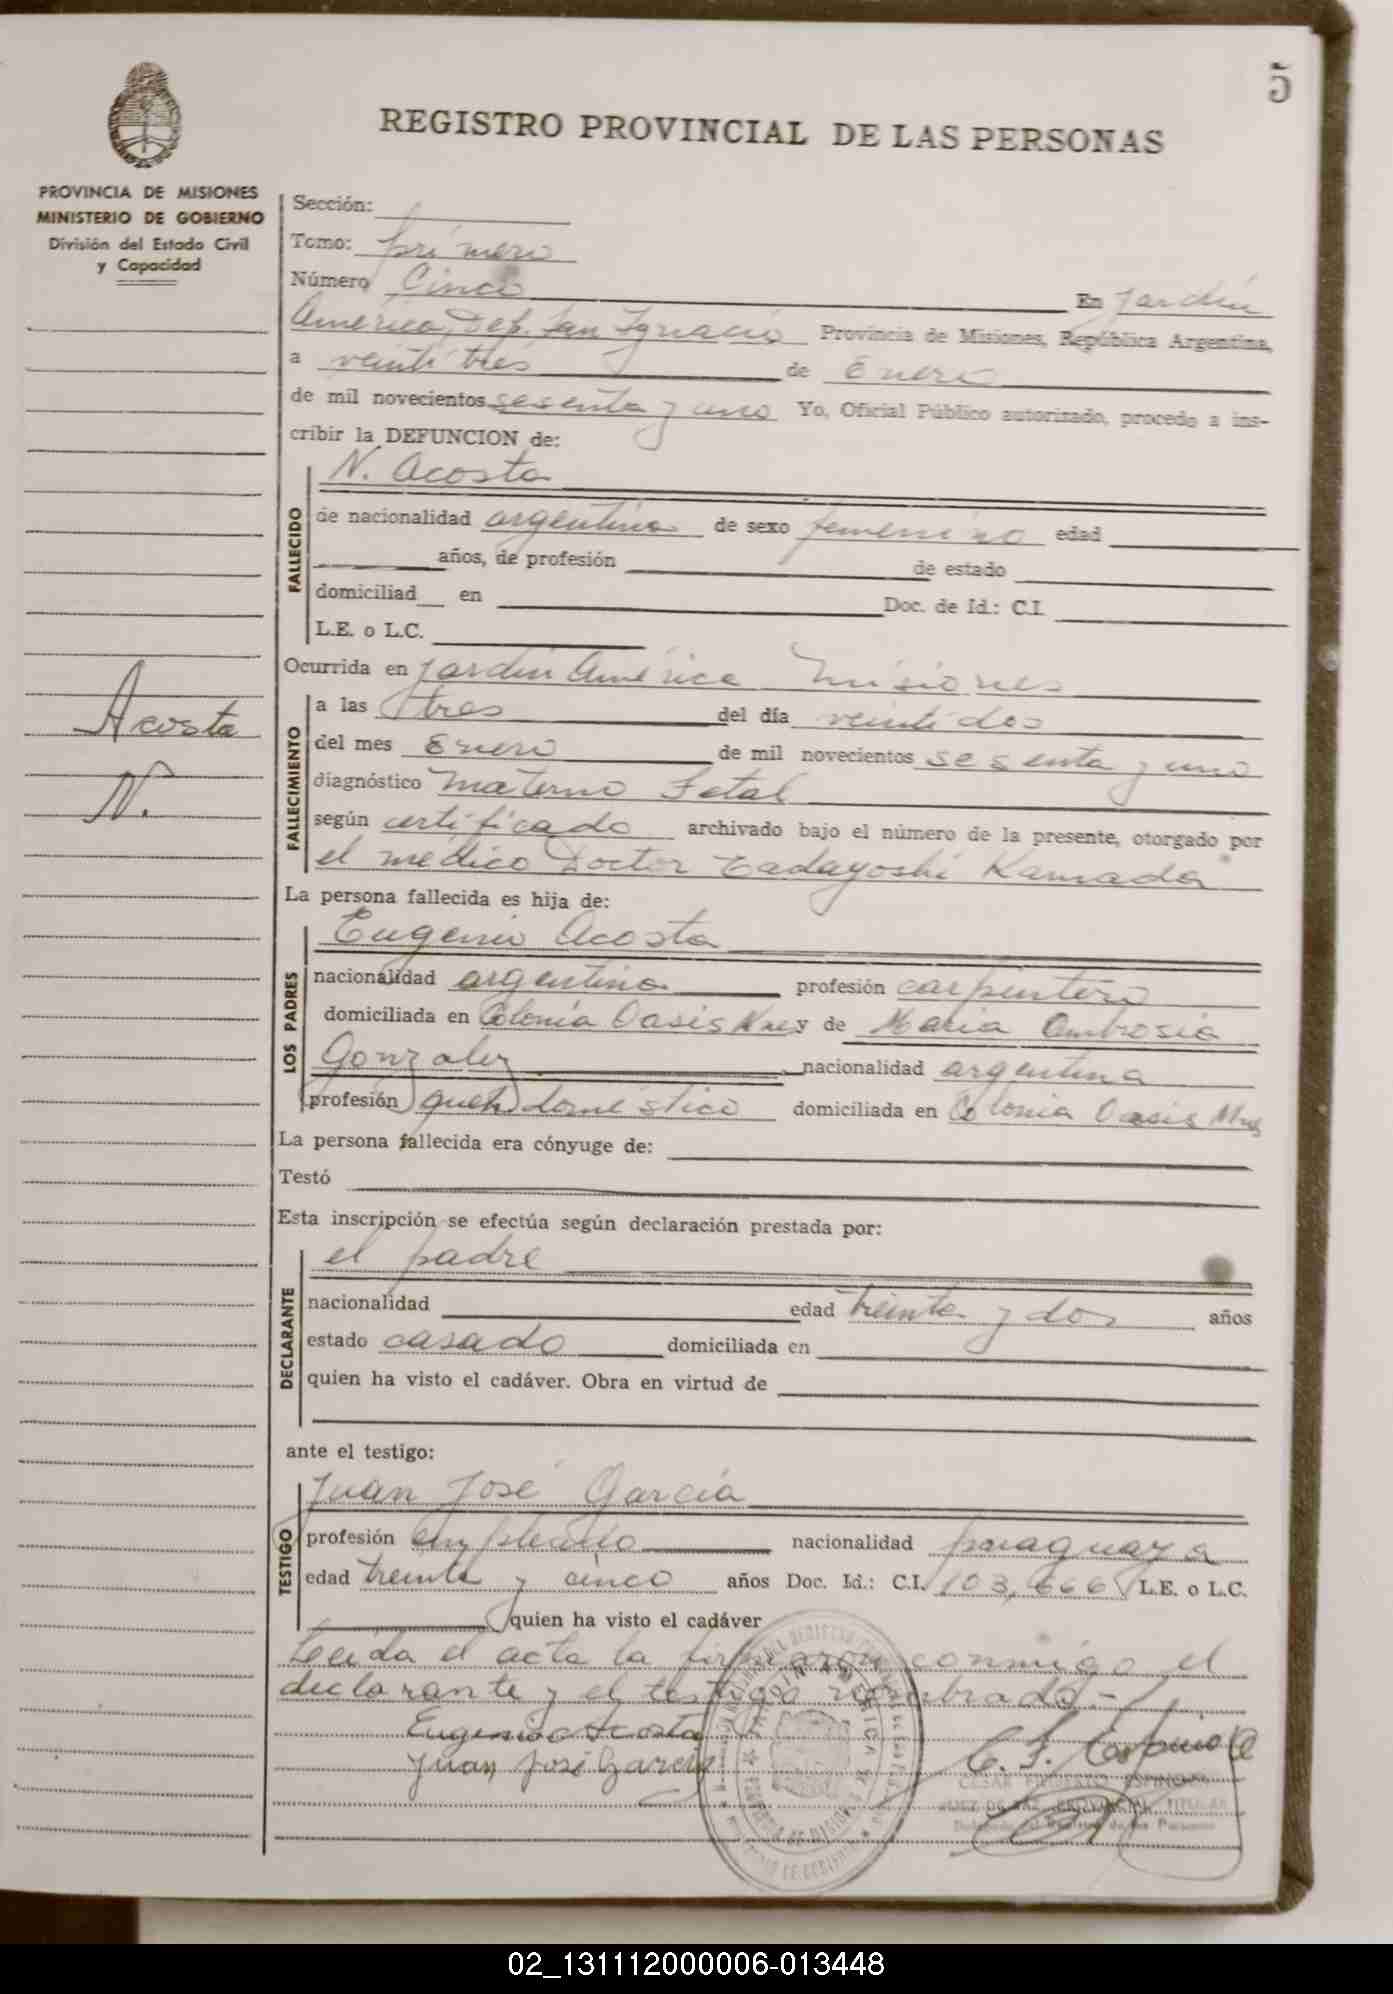 5
REGISTRO PROVINCIAL DE LAS PERSONAS
PROVINCIA DE MISIONES
MINISTERIO DE GOBIERNO
División del Estado Civil
y Capacidad
Sección:
Tomo: primero
Número Cinco En Jardín
América, Dep. San Ignacio Provincia de Misiones, República Argentina,
a veintitrés de Enero
de mil novecientos sesenta y uno Yo, Oficial Público autorizado, procedo a ins-
cribir la DEFUNCION de:
N. Acosta
FALLECIDO
de nacionalidad argentina de sexo femenino edad
años, de profesión de estado
domiciliad en Doc. de Id.: C.I.
L.E. o L.C.
Ocurrida en Jardín América Misiones
Acosta
N.
FALLECIMIENTO
a las tres del día veintidos
del mes Enero de mil novecientos sesenta y uno
diagnóstico Materno Fetal
según certificado archivado bajo el número de la presente, otorgado por
el médico Doctor Tadayoshi Kamada
La persona fallecida es hija de:
LOS PADRES
Eugenio Acosta
nacionalidad argentina profesión carpintero
domiciliada en Colonia Oasis y de Maria Ambrosia
Gonzalez nacionalidad argentina
profesión queh. doméstico domiciliada en Colonia Oasis
La persona fallecida era cónyuge de:
Testó
Esta inscripción se efectúa según declaración prestada por:
DECLARANTE
el padre
nacionalidad edad treinta y dos años
estado casado domiciliada en
quien ha visto el cadáver. Obra en virtud de
ante el testigo:
TESTIGO
Juan José García
profesión empleado nacionalidad paraguaya
edad treinta y cinco años Doc. Id.: C.I. 103,666 L.E. o L.C.
quien ha visto el cadáver
Leída el acta la firmaron conmigo el
declarante y el testigo nombrado.-
Eugenio Acosta
Juan José García
JARDIN AMERICA
02_131112000006-013448